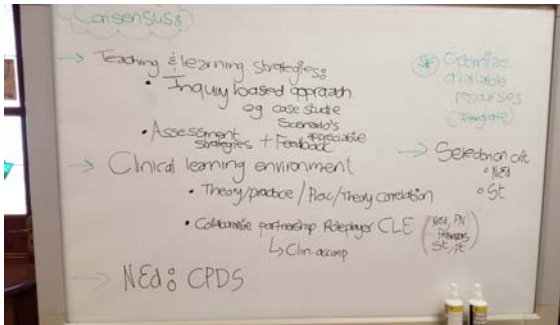 Consensus:
→ Teaching & learning strategies:
• Inquiry based approach
eg case studie
Scenario's
appreciative
• Assessment + Feedback
strategies
→ Clinical learning environment
• Theory/practice/Prac/Theory correlation
• Collaborative partnership Roleplayer CLE (NEd, PN
St, pt)
↳ Clin. accomp
→ NEd: CPDS
* Optimize
available
resourses
(Integrate)
→ Selection crit
• NEd
• St